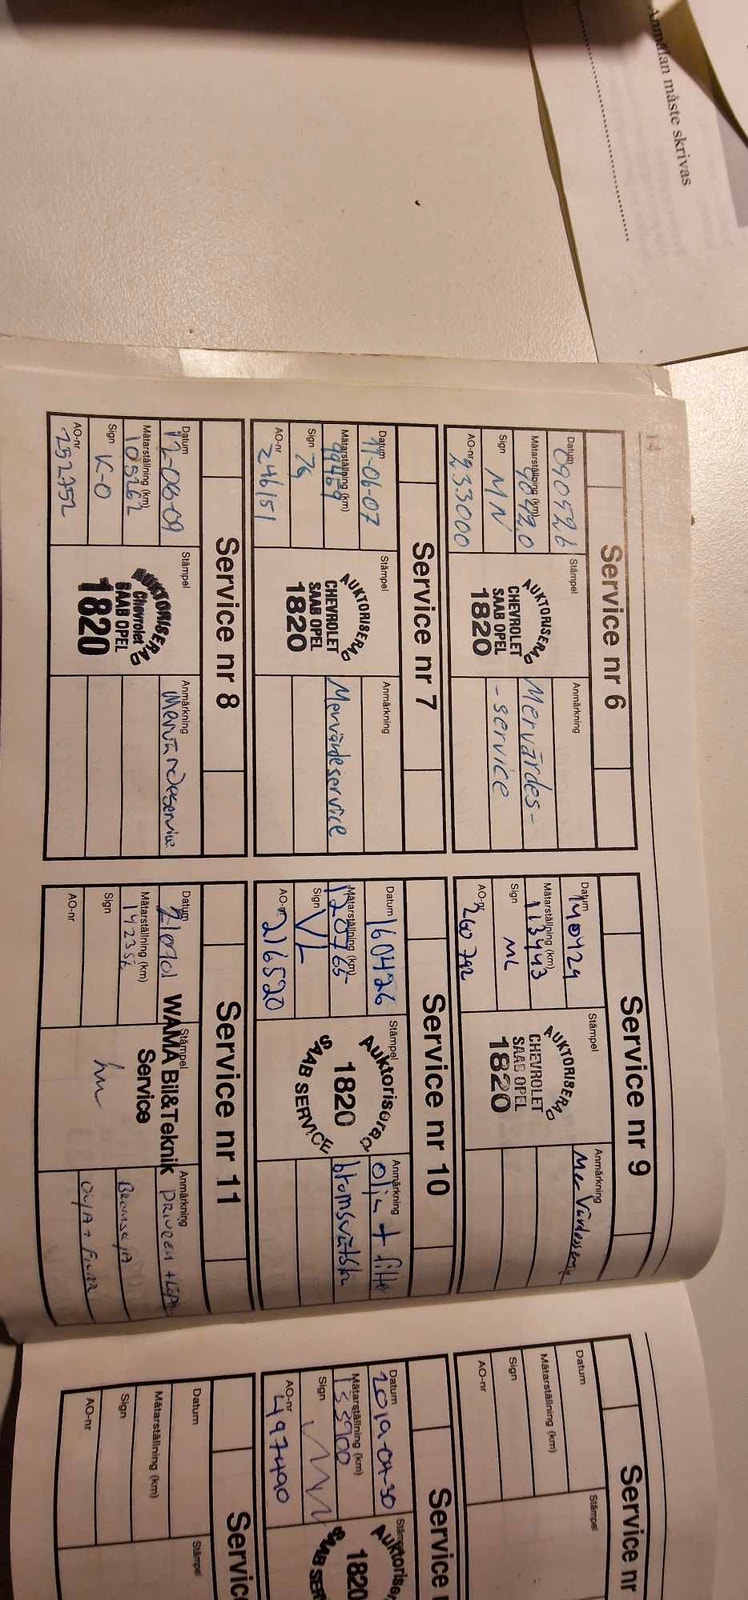 Anmälan måste skrivas
14
Service nr 6
Datum
090526
Mätarställning (km)
Sign
MN
AO-nr
233000
Stämpel
AUKTORISERAD
CHEVROLET
SAAB OPEL
1820
Anmärkning
Mervärdes-
-service
Service nr 7
Datum
11-06-07
Mätarställning (km)
Sign
AO-nr
246151
Stämpel
AUKTORISERAD
CHEVROLET
SAAB OPEL
1820
Anmärkning
Mervärdeservice
Service nr 8
Datum
12-06-09
Mätarställning (km)
105262
Sign
K-O
AO-nr
252752
Stämpel
AUKTORISERAD
Chevrolet
SAAB OPEL
1820
Anmärkning
Mervärdeservice
Service nr 9
Datum
140429
Mätarställning (km)
113443
Sign
ML
AO-nr
260792
Stämpel
AUKTORISERAD
CHEVROLET
SAAB OPEL
1820
Anmärkning
Service nr 10
Datum
160426
Mätarställning (km)
Sign
VL
AO-nr
216520
Stämpel
Auktoriserad
1820
SAAB SERVICE
Anmärkning
olja + filter
bromsvätska
Service nr 11
Datum
Mätarställning (km)
142356
Sign
AO-nr
Stämpel
WAMA Bil&Teknik
Service
Anmärkning
Olja + Filter
Service nr
Datum
Mätarställning (km)
Sign
AO-nr
Stämpel
Service
Datum
2019-04-30
Mätarställning (km)
133900
Sign
AO-nr
497490
Stämpel
Auktoriser
1820
SAAB SER
Servic
Datum
Mätarställning (km)
Sign
AO-nr
Stämpel